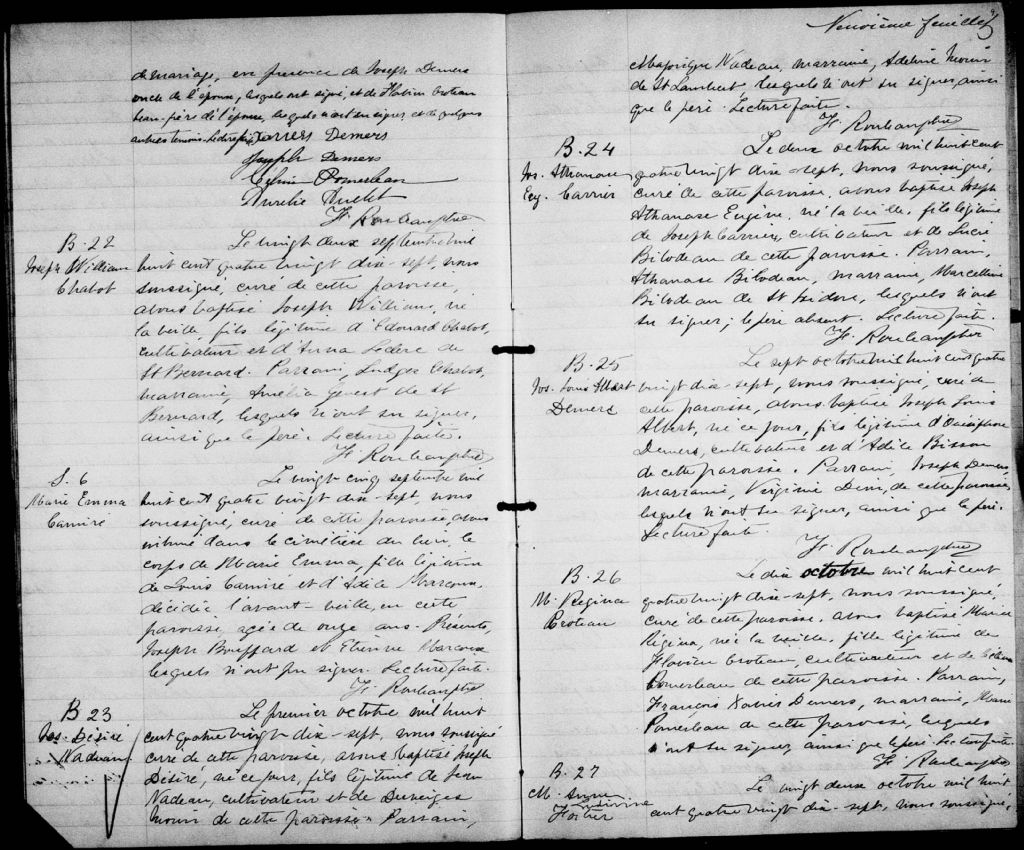 de mariage, en présence de Joseph Demers
oncle de l'épouse, lesquels ont signé, et de Flavien Croteau
beau-père de l'épouse, lesquels n'ont su signer et de quelques
autres témoins. Lecture faite. Demers
Joseph Demers
Pomerleau
Aurélie
B. 22
Joseph William
Chabot
Le vingt deux septembre mil
huit cent quatre vingt dix-sept, nous
soussigné, curé de cette paroisse,
avons baptisé Joseph William, né
la veille, fils légitime d'Edouard Chabot,
cultivateur et d'Anna Leclerc de
St Bernard. Parrain, Ludger Chabot,
marraine, Amélia Genest de St
Bernard, lesquels n'ont su signer,
ainsi que le père. Lecture faite.
S. 6
Marie Emma
Camiré
Le vingt-cinq septembre mil
huit cent quatre vingt dix-sept, nous
soussigné, curé de cette paroisse, avons
inhumé dans le cimetière du lieu, le
corps de Marie Emma, fille légitime
de Louis Camiré et d'Adèle Marcoux,
décédée l'avant-veille, en cette
paroisse, agée de onze ans. Présents,
Joseph Bouffard et Etienne Marcoux
lesquels n'ont pu signer. Lecture faite.
B 23
Jos. Désiré
Nadeau
Le premier octobre mil huit
cent quatre vingt dix-sept, nous soussigné
curé de cette paroisse, avons baptisé Joseph
Désiré, né ce jour, fils légitime de Jean
Nadeau, cultivateur et de
Morin de cette paroisse. Parrain,
Neuvième feuillet
Nadeau, marraine, Adeline Morin
de St Lambert, lesquels n'ont su signer, ainsi
que le père. Lecture faite.
B. 24
Jos. Athanase
Eug. Carrier
Le deux octobre mil huit cent
quatre vingt dix-sept, nous soussigné,
curé de cette paroisse, avons baptisé Joseph
Athanase Eugène, né la veille, fils légitime
de Joseph Carrier, cultivateur et de Lucie
Bilodeau de cette paroisse. Parrain,
Athanase Bilodeau, marraine, Marcelline
Bilodeau de St Isidore, lesquels n'ont
su signer; le père absent. Lecture faite.
B. 25
Jos. Louis Albert
Demers
Le sept octobre mil huit cent quatre
vingt dix-sept, nous soussigné, curé de
cette paroisse, avons baptisé Joseph Louis
Albert, né ce jour, fils légitime d'Onésiphore
Demers, cultivateur et d'Adèle Bisson
de cette paroisse. Parrain, Joseph Demers,
marraine, Virginie de cette paroisse,
lesquels n'ont su signer, ainsi que le père.
Lecture faite.
B. 26
M. Régina
Croteau
Le dix octobre mil huit cent
quatre vingt dix-sept, nous soussigné,
curé de cette paroisse, avons baptisé Marie
Régina, née la veille, fille légitime de
Flavien Croteau, cultivateur et de
Pomerleau de cette paroisse. Parrain,
François Xavier Demers, marraine, Marie
Pomerleau de cette paroisse, lesquels
n'ont su signer ainsi que le père. Lecture faite.
B. 27
M. Anne
Le vingt deux octobre mil huit
cent quatre vingt dix-sept, nous soussigné,